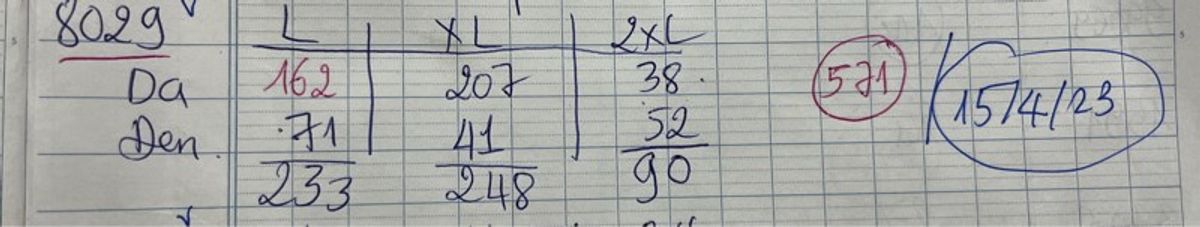 8029 L XL 2XL
Da 162 207 38. 571 15/4/23
Den. 71 41 52
233 248 90